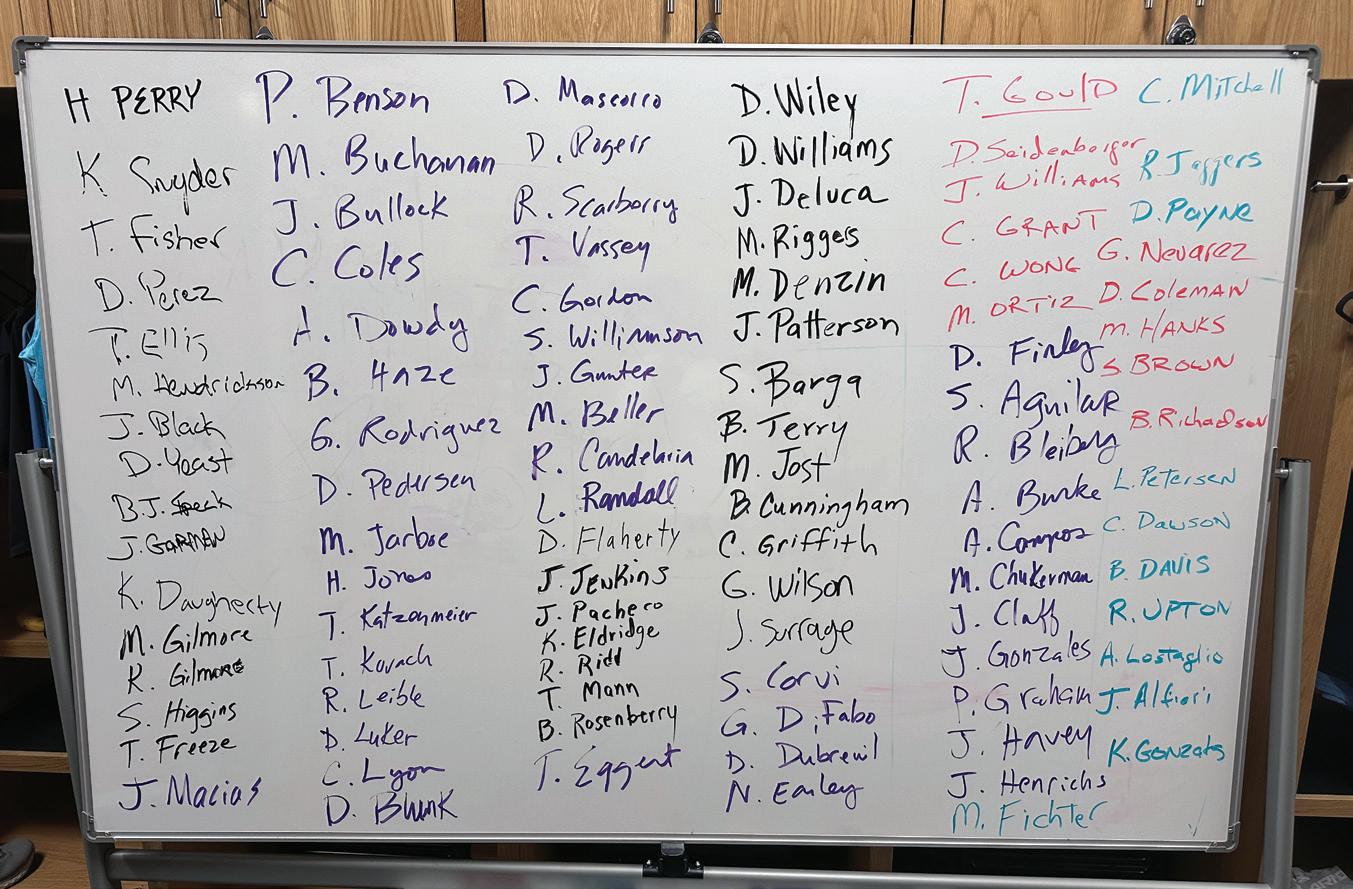 H PERRY
K Snyder
T. Fisher
D. Perez
T. Ellis
M. Hendrickson
J. Black
D. Yeast
B.J. Speck
J. GARMAN
K. Daugherty
M. Gilmore
K. Gilmore
S. Higgins
T. Freeze
J. Macias
P. Benson
M. Buchanan
J. Bullock
C. Coles
A. Dowdy
B. Haze
G. Rodriguez
D. Pedersen
M. Jarboe
H. Jones
T. Katzenmeier
T. Kovach
R. Leible
D. Luker
C. Lyon
D. Blunk
D. Mascorro
D. Rogers
R. Scarberry
T. Vassey
C. Gordon
S. Williamson
J. Gunter
M. Beller
R. Candelaria
L. Randall
D. Flaherty
J. JENKINS
J. Pacheco
K. Eldridge
R. Ridd
T. Mann
B. Rosenberry
T. Eggert
D. Wiley
D. Williams
J. Deluca
M. Riggers
M. Denzin
J. Patterson
S. Barga
B. Terry
M. Jost
B. Cunningham
C. Griffith
G. Wilson
J. Surrage
S. Corvi
G. DiFabo
D. Dubreuil
N. Earley
T. GoulD
D. Seidenberger
J. Williams
C. GRANT
C. WONG
M. ORTIZ
D. Finley
S. Aguilar
R. Bleiberg
A. Burke
A. Campos
M. Chukerman
J. Claff
J. Gonzales
P. Graham
J. Harvey
J. Henrichs
M. Fichter
C. Mitchell
R. Jaggers
D. Payne
G. Nevarez
D. Coleman
M. HANKS
S BROWN
B. Richadson
L. Petersen
C. Dawson
B. DAVIS
R. UPTON
A. Lostaglio
J. Alfieri
K. Gonzals